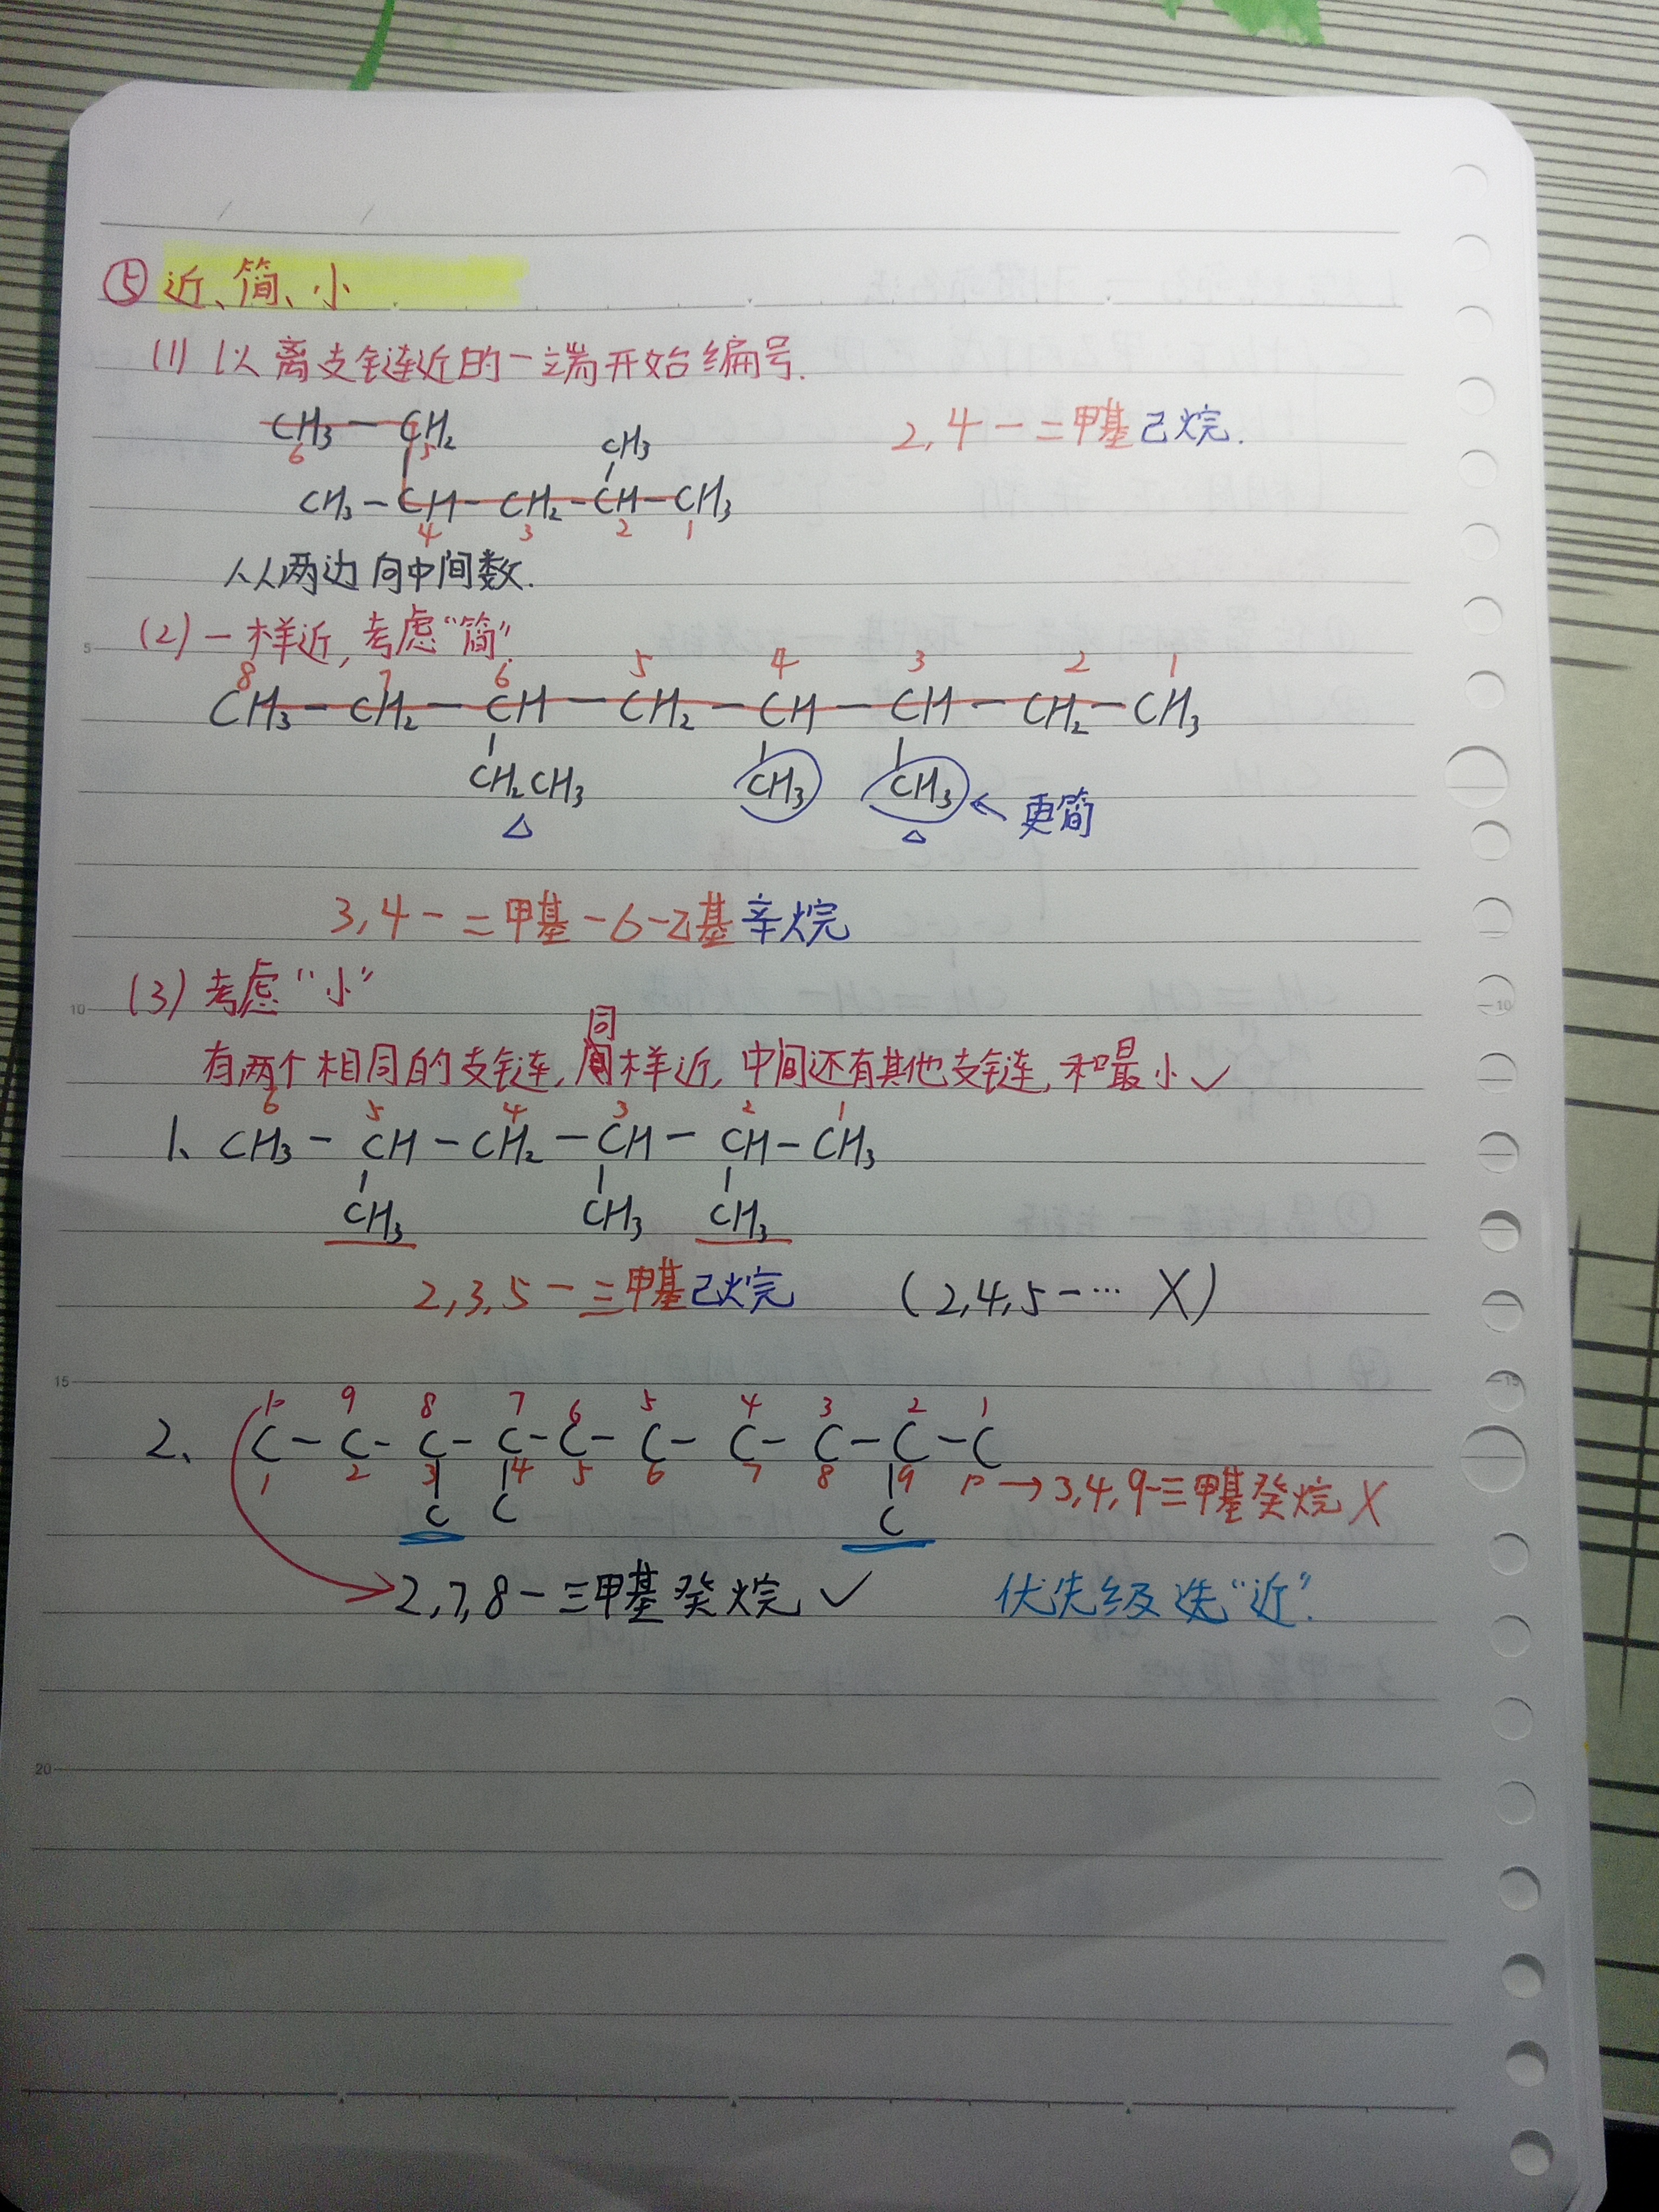 ⑤ 近、简、小
(1) 以离支链近的一端开始编号.
CH₃ — CH₂
6 5
CH₃
2,4-二甲基己烷.
CH₃-CH-CH₂-CH-CH₃
4 3 2 1
从两边向中间数.
(2) 一样近,考虑“简”.
8 7 6 5 4 3 2 1
CH₃-CH₂-CH-CH₂-CH-CH-CH₂-CH₃
CH₂CH₃ CH₃ CH₃ ← 更简
△ △
3,4-二甲基-6-乙基辛烷
(3) 考虑“小”
同
有两个相同的支链,样近,中间还有其他支链,和最小✓
6 5 4 3 2 1
1、CH₃-CH-CH₂-CH-CH-CH₃
CH₃ CH₃ CH₃
2,3,5-三甲基己烷 (2,4,5-… X)
10 9 8 7 6 5 4 3 2 1
2、C-C-C-C-C-C-C-C-C-C
1 2 3 4 5 6 7 8 9 10 → 3,4,9-三甲基癸烷 X
C C C
2,7,8-三甲基癸烷 ✓ 优先级选“近”.
5
10
15
20
10
15